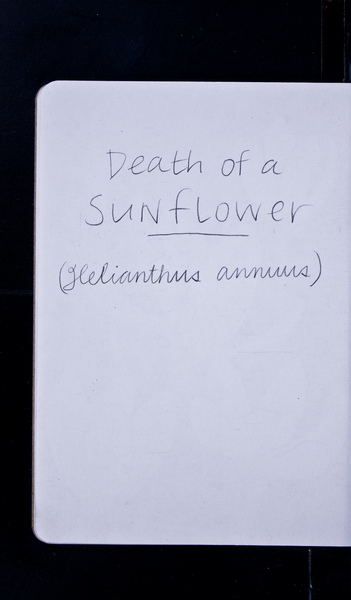 Death of a
SUNflower
(Helianthus annuus)